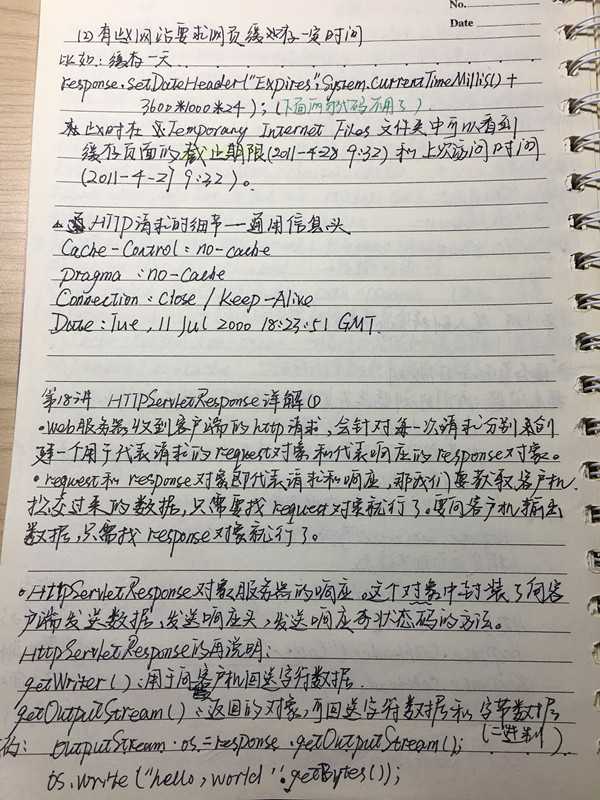 No.
Date
(2)有些网站要求网页缓存一定时间
比如:缓存一天
response.setDateHeader("Expires",System.currentTimeMillis()+
3600*1000*24);(下面两句代码不用了)
此时在Temporary Internet Files文件夹中可以看到
缓存页面的截止期限(2011-4-28 9:32)和上次访问时间
(2011-4-27 9:32)。
HTTP请求的细节——通用信息头
Cache-Control:no-cache
Pragma:no-cache
Connection:Close/Keep-Alive
Date:Tue,11 Jul 2000 18:23:51 GMT.
第18讲 HTTPServletResponse详解(1)
·Web服务器收到客户端的http请求,会针对每一次请求分别来创
建一个用于代表请求的request对象和代表响应的response对象。
·request和response对象即代表请求和响应,那我们要获取客户机
提交过来的数据,只需要找request对象就行了。要向客户机输出
数据,只需找response对象就行了。
·HttpServletResponse对象服务器的响应。这个对象中封装了向客
户端发送数据,发送响应头,发送响应状态码的方法。
HttpServletResponse的再说明:
getWriter():用于向客户机回送字符数据
getOutputStream():返回的对象,可回送字符数据和字节数据
(二进制)
OutputStream os=response.getOutputStream();
os.write("hello,world".getBytes());